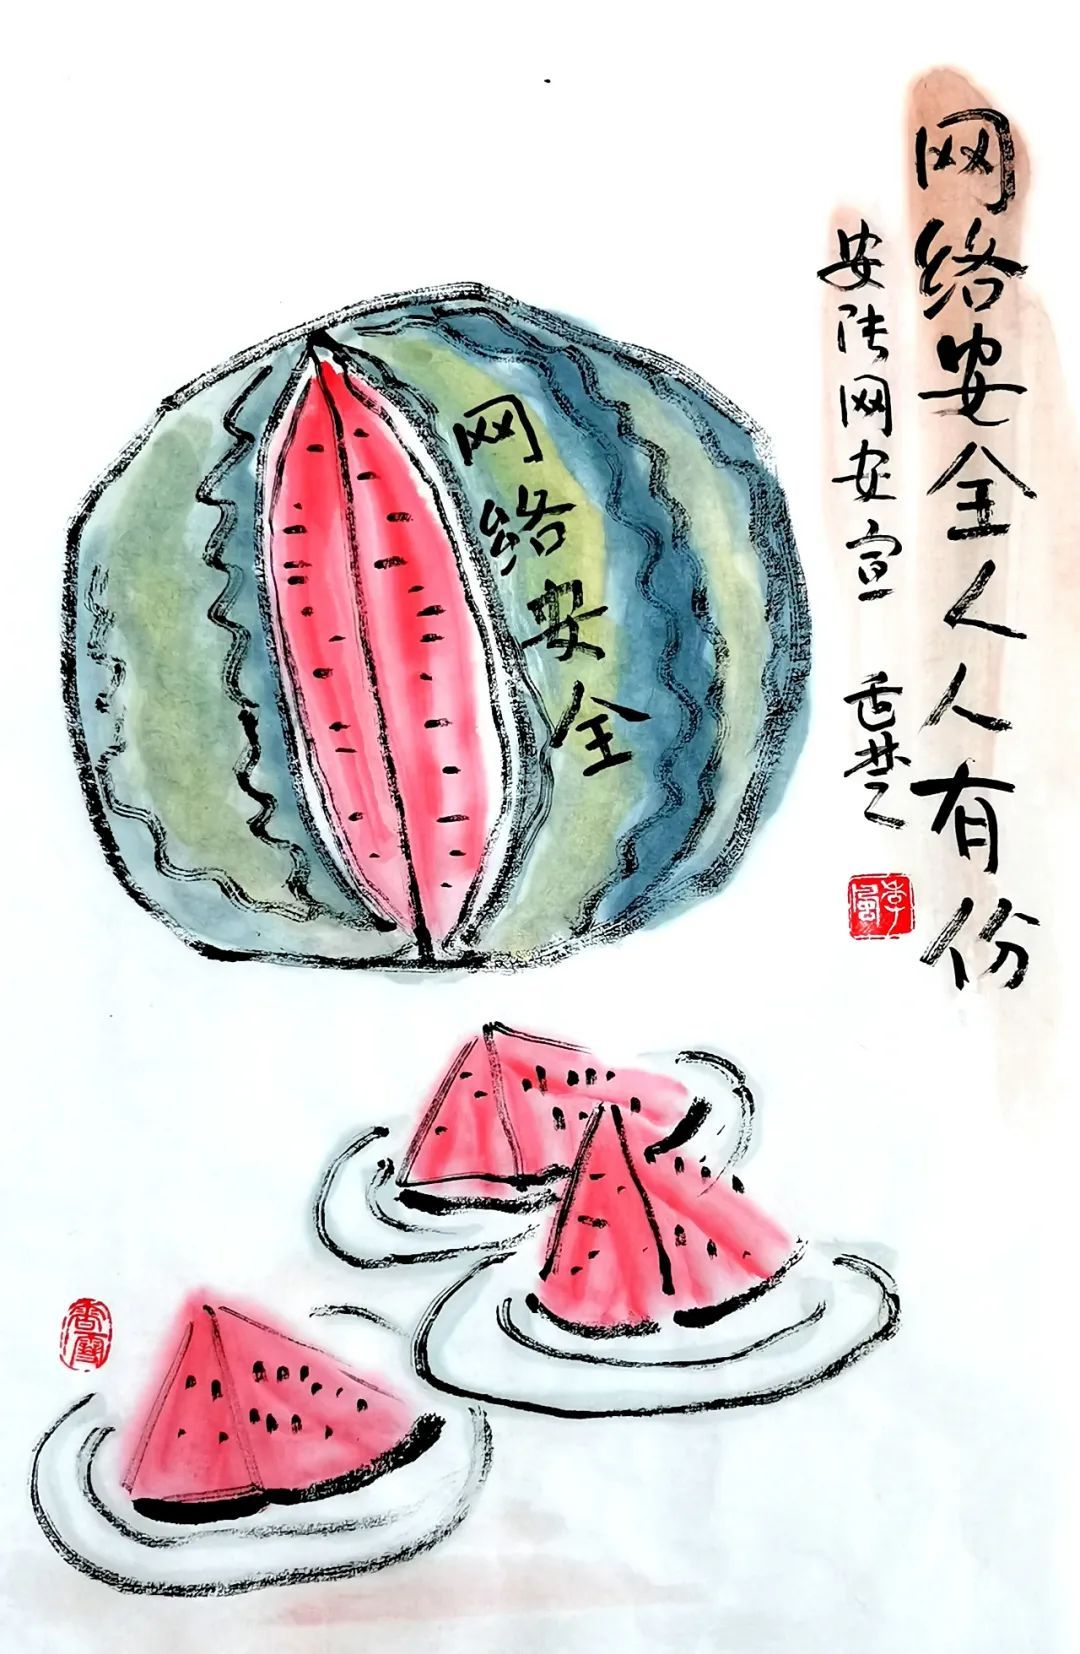 网络安全人人有份
安陆网安宣
网络安全
季風
香雪